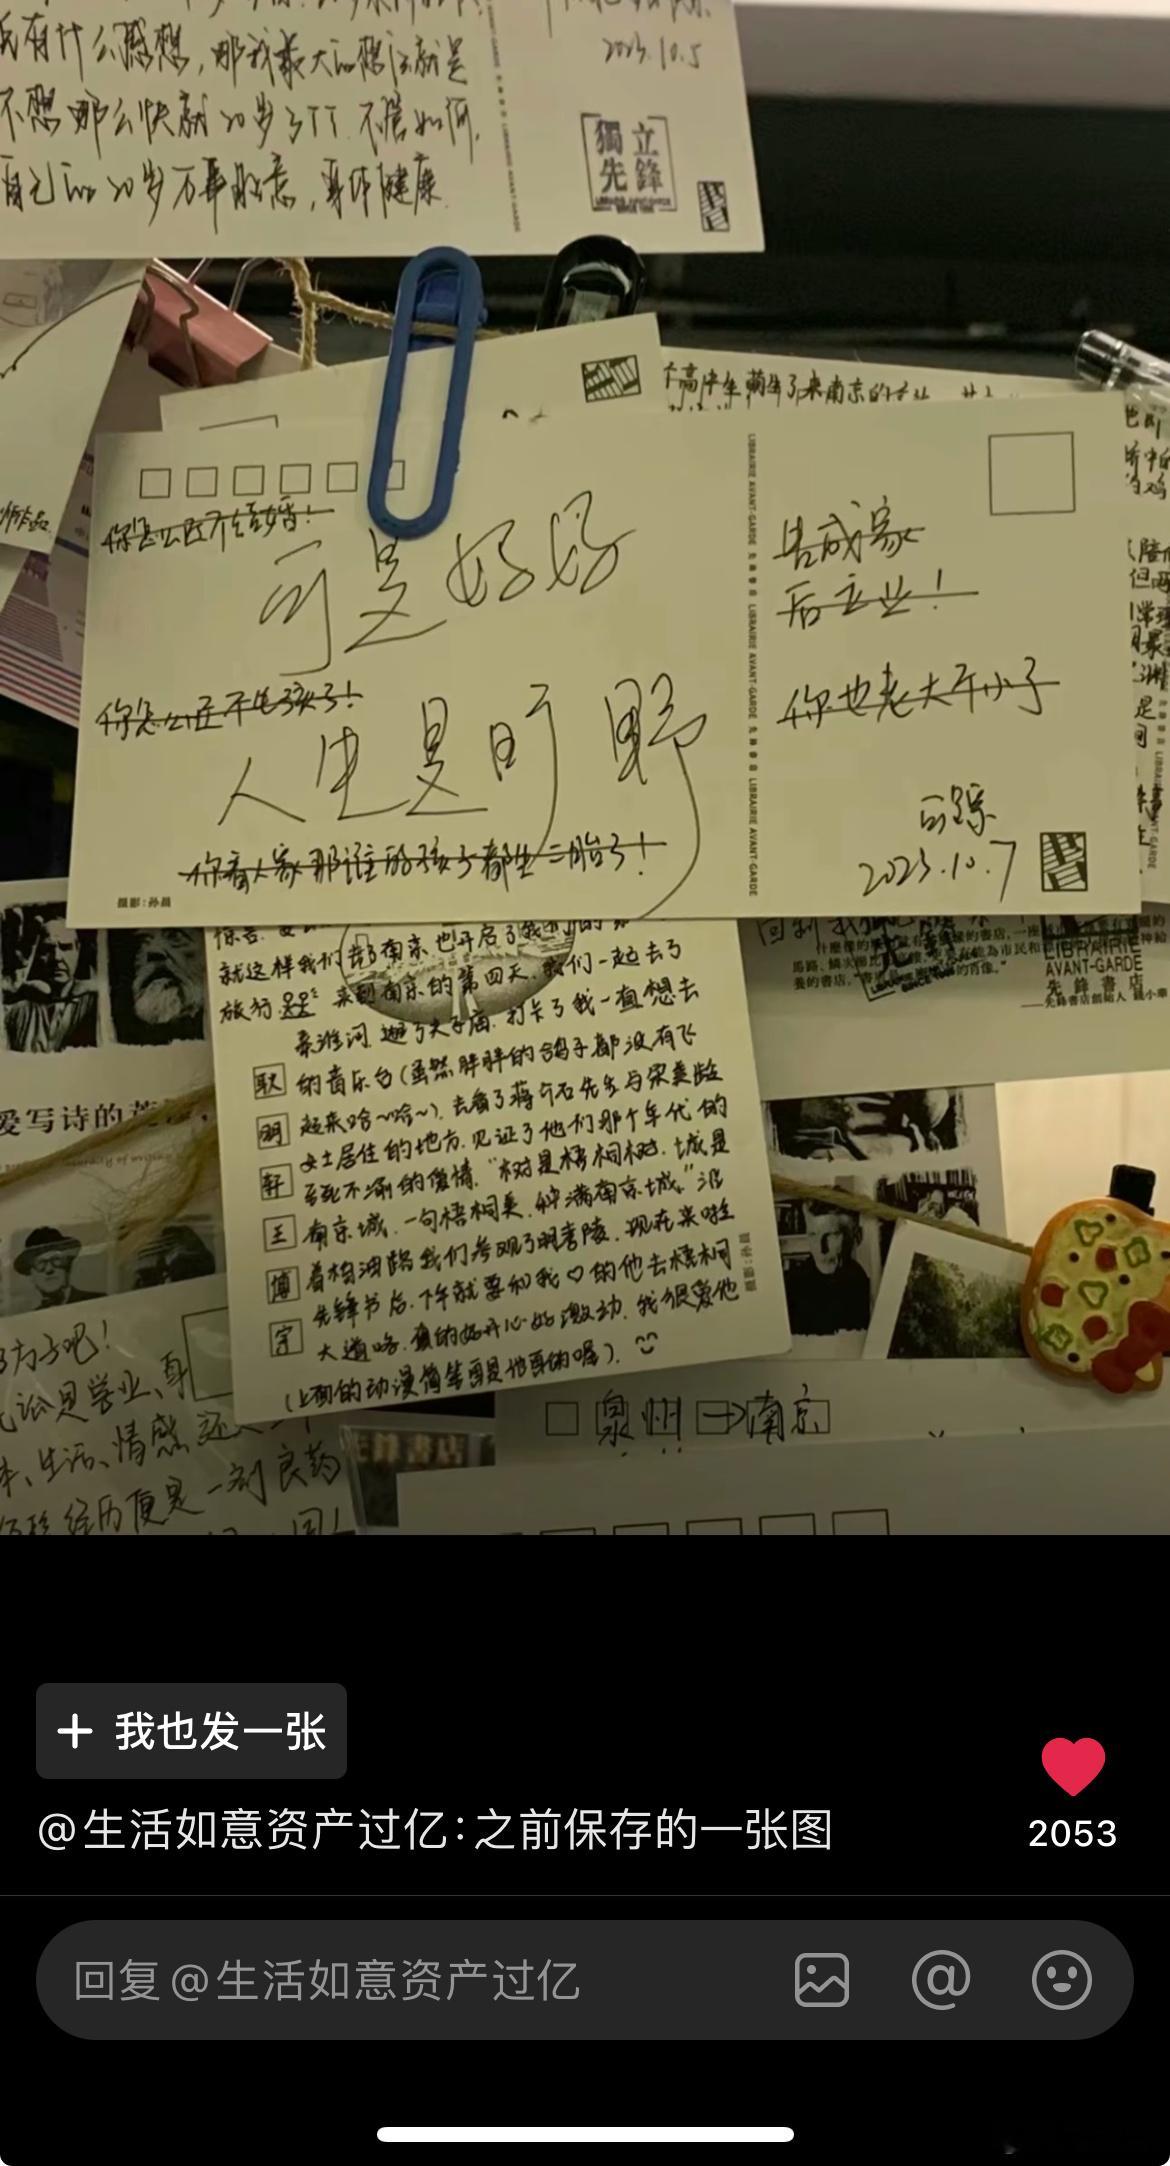 有什么感想，那我最大的想法就是
不想那么快就20岁了TT.不管如何，
自己的20岁万事胜意，身体健康
2023.10.5
獨立
先鋒
LIBRAIRIE AVANT-GARDE
高中生萌生了来南京的
你怎么还不结婚！
可是好好
你怎么还不生孩子！
人生是旷野
你看人家那谁的孩子都生二胎了！
摄影：孙昌
LIBRAIRIE AVANT-GARDE 先鋒書店 LIBRAIRIE AVANT-GARDE 先鋒書店 LIBRAIRIE AVANT-GARDE
先成家
后立业！
你也老大不小了
2023.10.7
就这样我们去了南京也开启了我们的
旅行 来到南京的第四天，我们一起去了
秦淮河，逛了夫子庙，打卡了我一直想去
的音乐台(虽然胖胖的鸽子都没有飞
起来哈~哈~)，去看了蒋介石先生与宋美龄
女士居住的地方，见证了他们那个年代的
至死不渝的爱情，“树是梧桐树，城是
南京城，一句梧桐美，种满南京城。”沿
着柏油路我们参观了明孝陵，现在来啦
先锋书店，下午就要和我♡的他去梧桐
大道咯，真的好开心好激动，我很爱他
(上面的动漫简笔画是他画的喔)
耿
明
轩
王
博
宇
LIBRAIRIE
AVANT-GARDE
先鋒書店
——先鋒書店創始人 錢小華
爱写诗的
方子吧！
论是学业、身
生活、情感还
经历便是一剂良药
泉州→南京
我也发一张
@生活如意资产过亿：之前保存的一张图
2053
回复@生活如意资产过亿